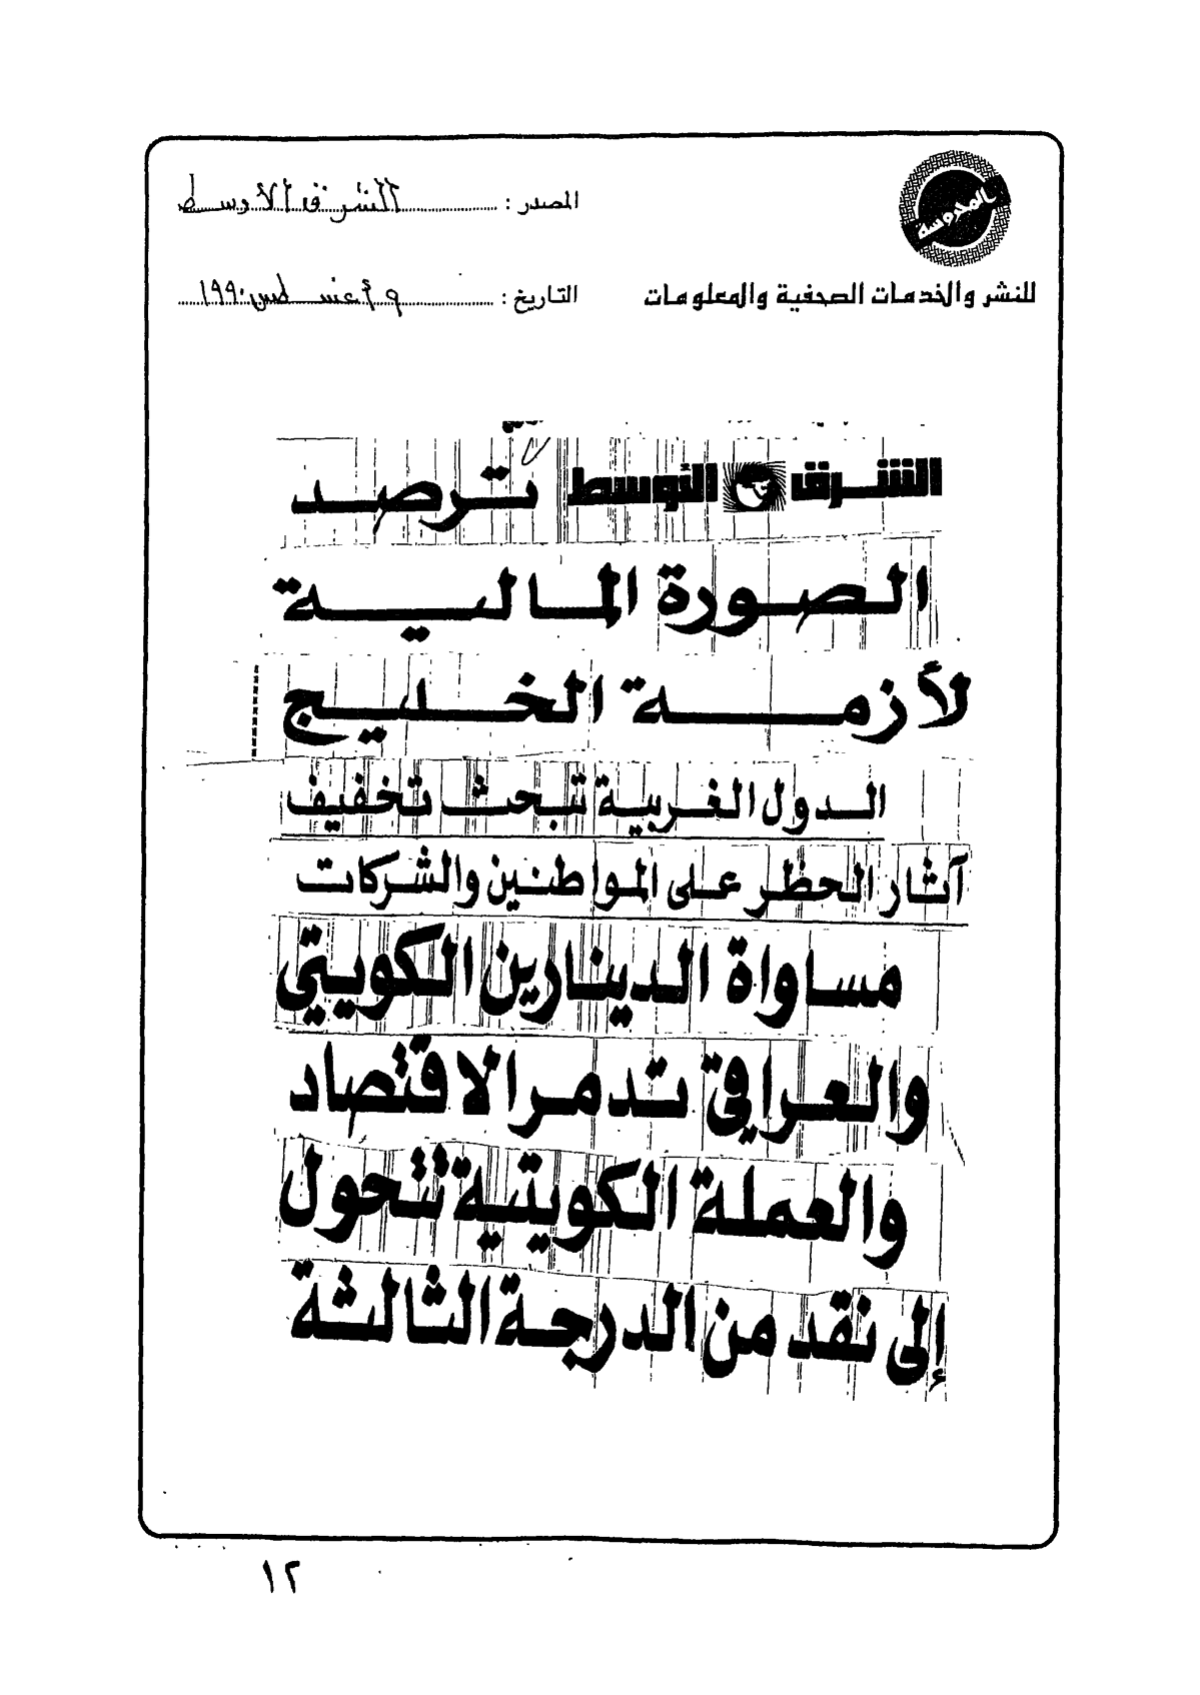 المحروسة
المصدر : الشرق الأوسط
للنشر والخدمات الصحفية والمعلومات
التاريخ : ٩ أغسطس ١٩٩٠
الشرق الأوسط ترصد
الصورة المالية
لأزمة الخليج
الدول الغربية تبحث تخفيف
آثار الحظر على المواطنين والشركات
مساواة الدينارين الكويتي
والعراقي تدمر الاقتصاد
والعملة الكويتية تتحول
إلى نقد من الدرجة الثالثة
١٢